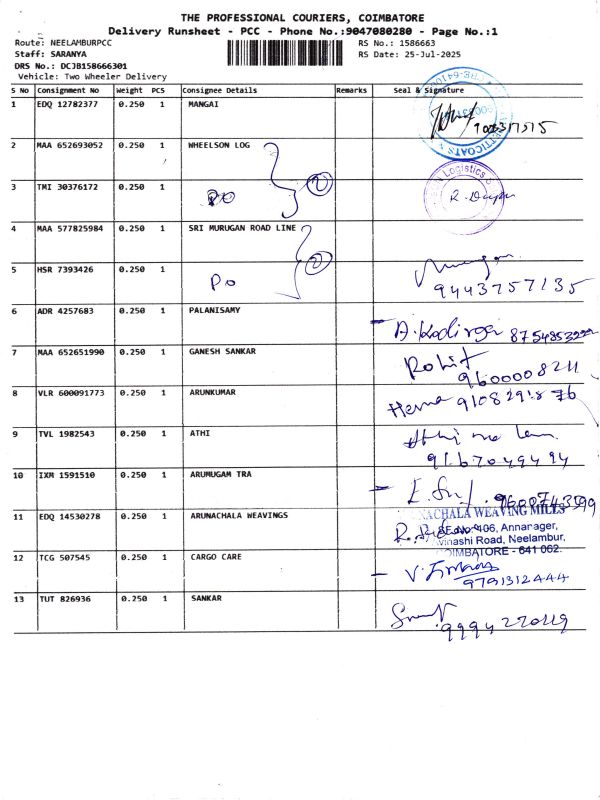 THE PROFESSIONAL COURIERS, COIMBATORE
Delivery Runsheet - PCC - Phone No.:9047080280 - Page No.:1
Route: NEELAMBURPCC
RS No.: 1586663
Staff: SARANYA
RS Date: 25-Jul-2025
DRS No.: DCJB158666301
Vehicle: Two Wheeler Delivery
S No Consignment No Weight PCS Consignee Details Remarks Seal & Signature
1 EDQ 12782377 0.250 1 MANGAI
2 MAA 652693052 0.250 1 WHEELSON LOG
2
Logistics
3 TMI 30376172 0.250 1 PO
4 MAA 577825984 0.250 1 SRI MURUGAN ROAD LINE
2
5 HSR 7393426 0.250 1 PO 9443757135
6 ADR 4257683 0.250 1 PALANISAMY
7 MAA 652651990 0.250 1 GANESH SANKAR Rohit
9600008211
8 VLR 600091773 0.250 1 ARUNKUMAR Hema 9108291876
9 TVL 1982543 0.250 1 ATHI
10 IXM 1591510 0.250 1 ARUMUGAM TRA
11 EDQ 14530278 0.250 1 ARUNACHALA WEAVINGS
NACHALA WEAVING MILLS
406, Annanager,
Road, Neelambur,
COIMBATORE - 641 062.
12 TCG 507545 0.250 1 CARGO CARE
9791312444
13 TUT 826936 0.250 1 SANKAR
9994270119